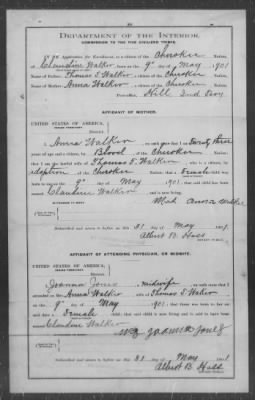 DEPARTMENT OF THE INTERIOR,
COMMISSION TO THE FIVE CIVILIZED TRIBES.
IN RE Application for Enrollment, as a citizen of the Cherokee Nation,
of Claudine Walker born on the 9" day of May 1901
Name of Father: Thomas S. Walker a citizen of the Cherokee Nation.
Name of Mother: Anna Walker a citizen of the Cherokee Nation.
Hill Ind Tery
AFFIDAVIT OF MOTHER.
UNITED STATES OF AMERICA,
INDIAN TERRITORY
District.
I, Anna Walker on oath state that I am Twenty three
years of age and a citizen, by Blood of the Cherokee Nation,
that I am the lawful wife of Thomas S. Walker, who is a citizen, by
adoption of the Cherokee Nation, that a Female child
was born to me on the 9" day of May 1901 that said child has been
named Claudine Walker and is now living.
Anna Walker
Subscribed and sworn to before me this 31 day of May 1901
Albert B. Hass
AFFIDAVIT OF ATTENDING PHYSICIAN, OR MIDWIFE.
UNITED STATES OF AMERICA,
INDIAN TERRITORY
District.
I, Joanna Jones, a midwife, on oath state that I
attended on Mrs. Anna Walker wife of Thomas S. Walker
on the 9" day of May 1901, that there was born to her on
said date a Female child; that said child is now living and is said to have been
named Claudine Walker
Subscribed and sworn to before me this 31 day of May 1901
Albert B. Hass